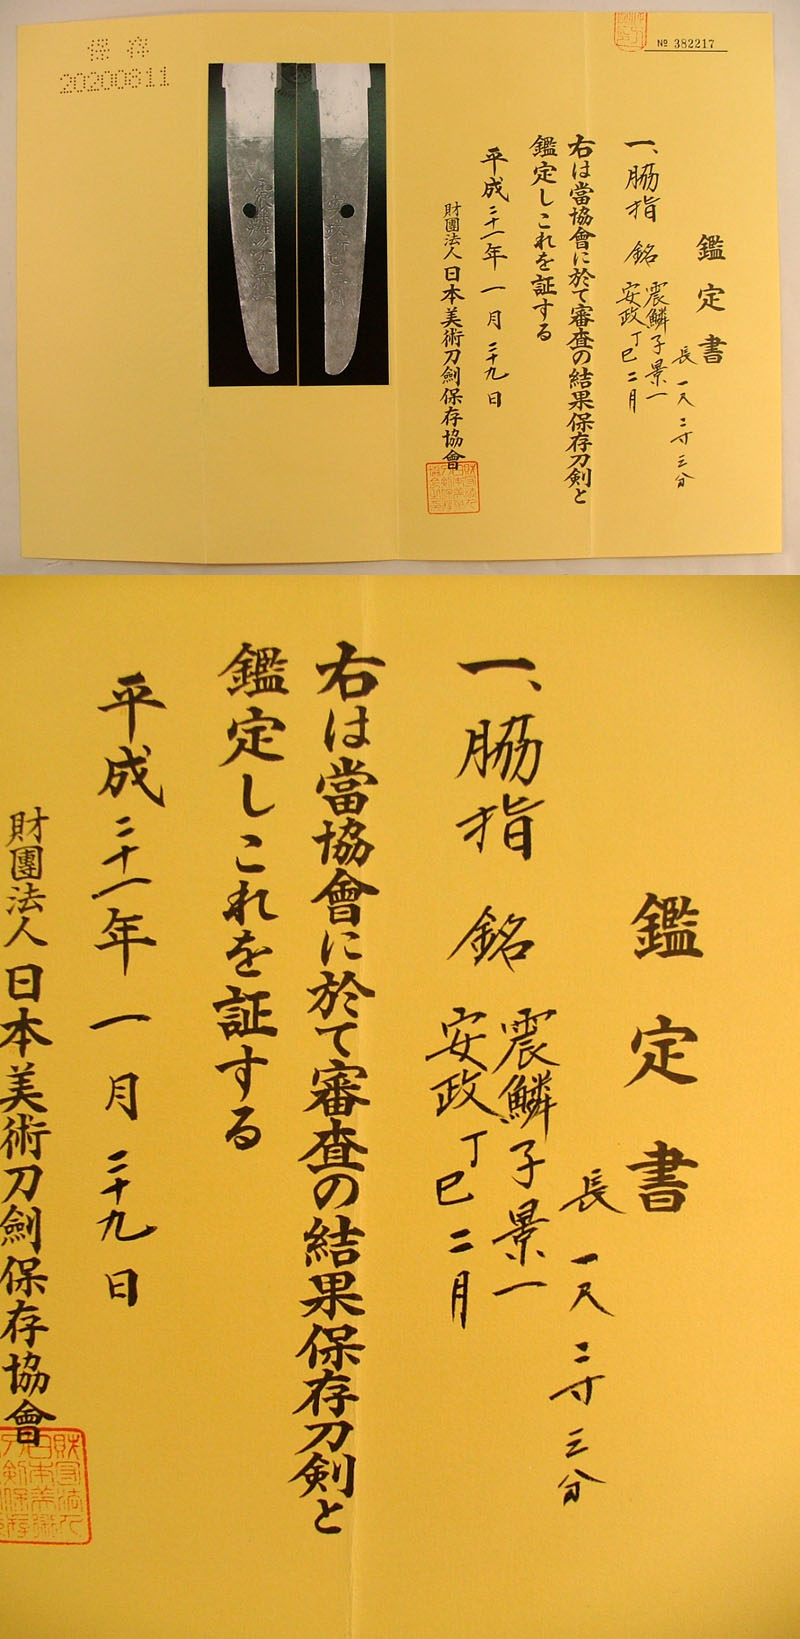 保存
20200811
№ 382217
鑑定書
長 一尺二寸三分
一、脇指 銘 震鱗子景一
安政丁巳二月
右は當協會に於て審査の結果保存刀剣と
鑑定しこれを証する
平成二十一年一月二十九日
財團法人日本美術刀劍保存協會
鑑定書
長 一尺二寸三分
一、脇指 銘 震鱗子景一
安政丁巳二月
右は當協會に於て審査の結果保存刀剣と
鑑定しこれを証する
平成二十一年一月二十九日
財團法人日本美術刀劍保存協會